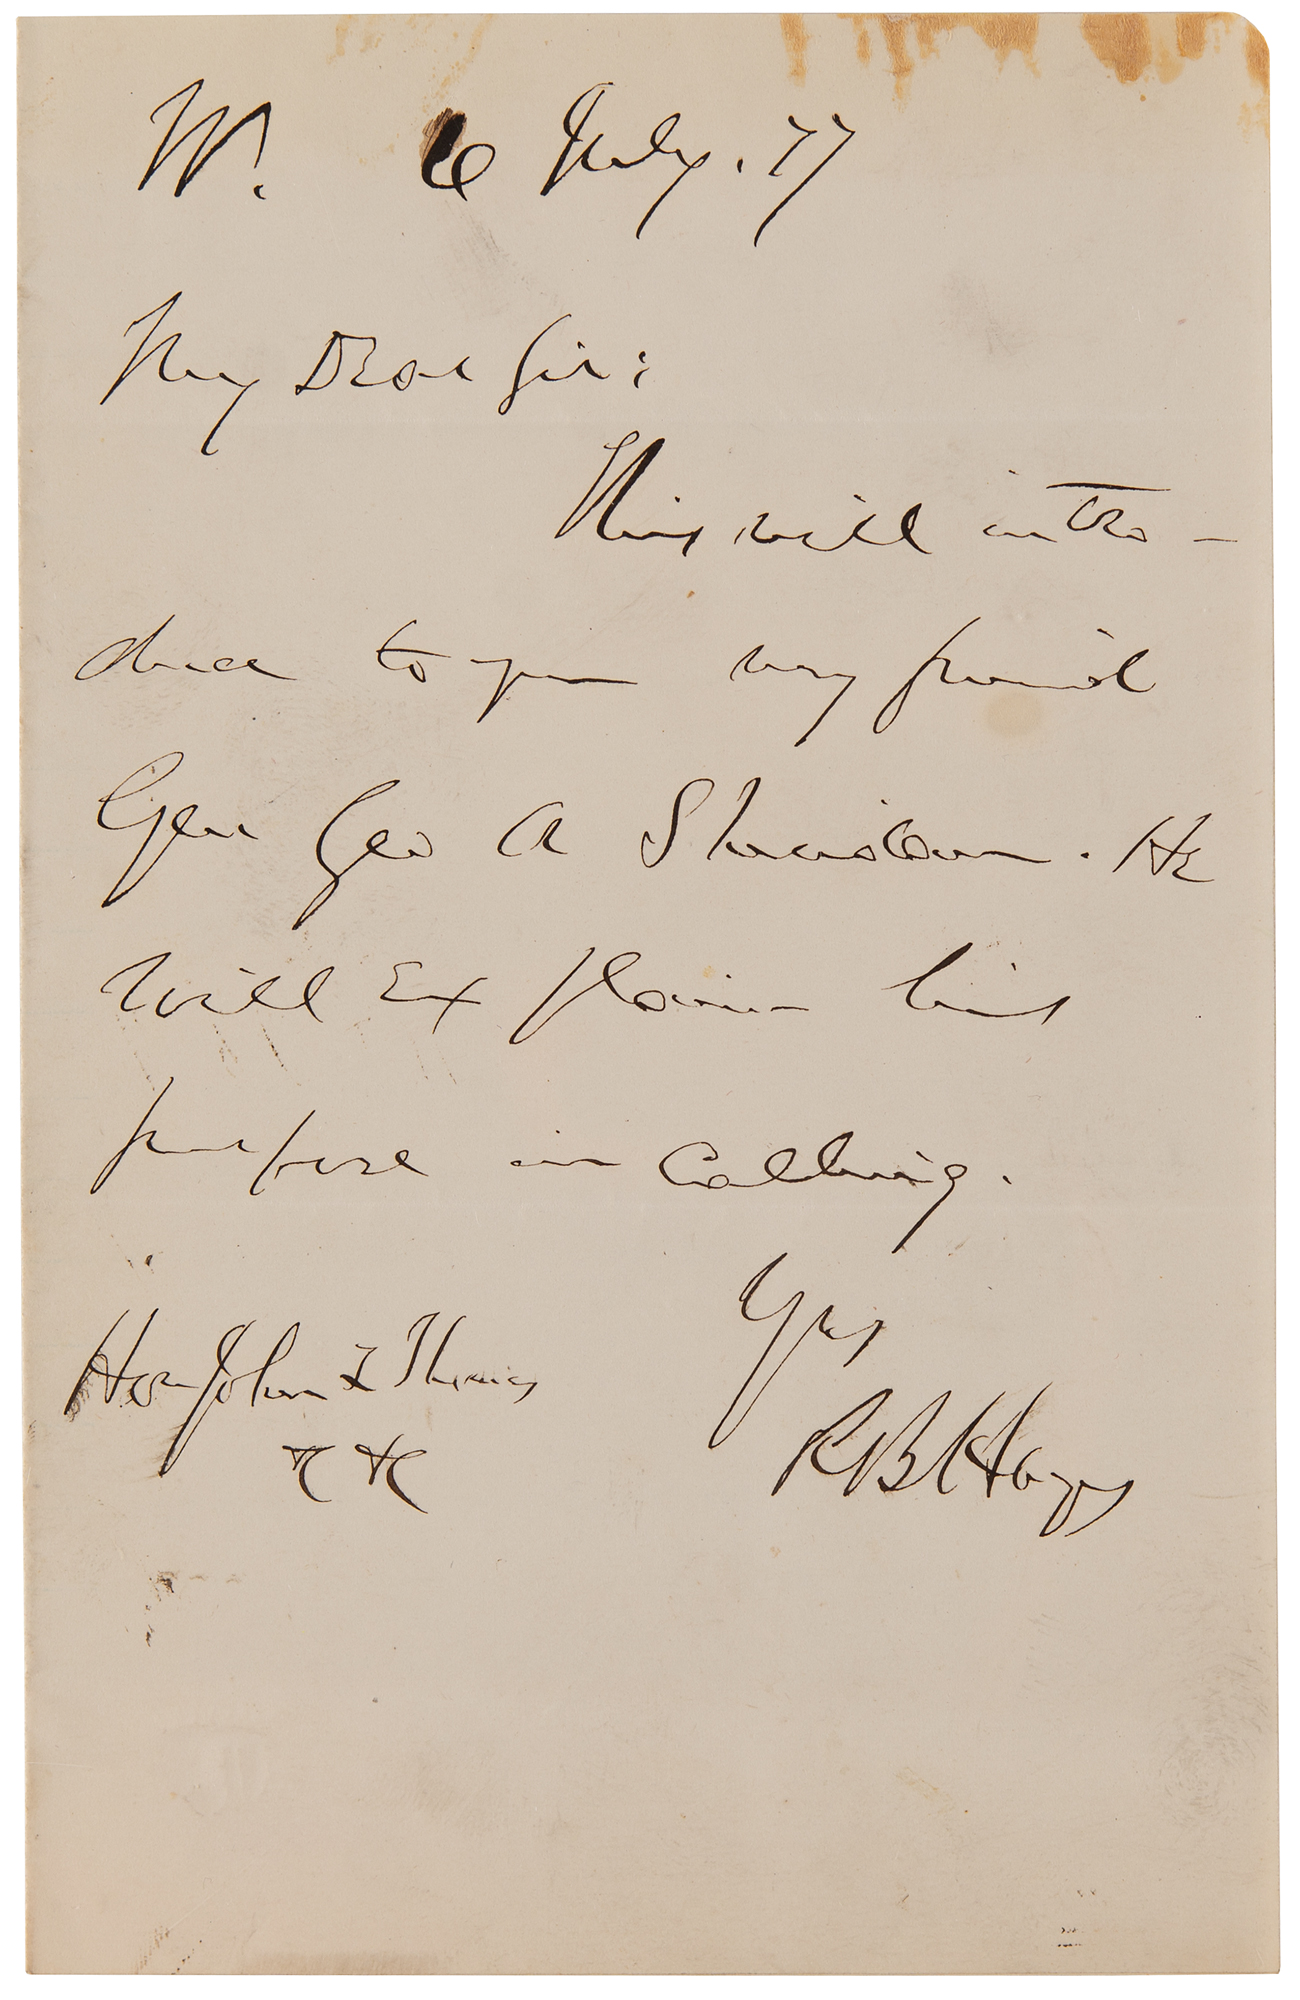 W. 6 July. 77
My Dear Sir:
This will intro-
duce to you my friend
Gen Geo A Sheridan. He
will explain his
purpose in calling.
Yrs
R B Hayes
Hon John Thomas